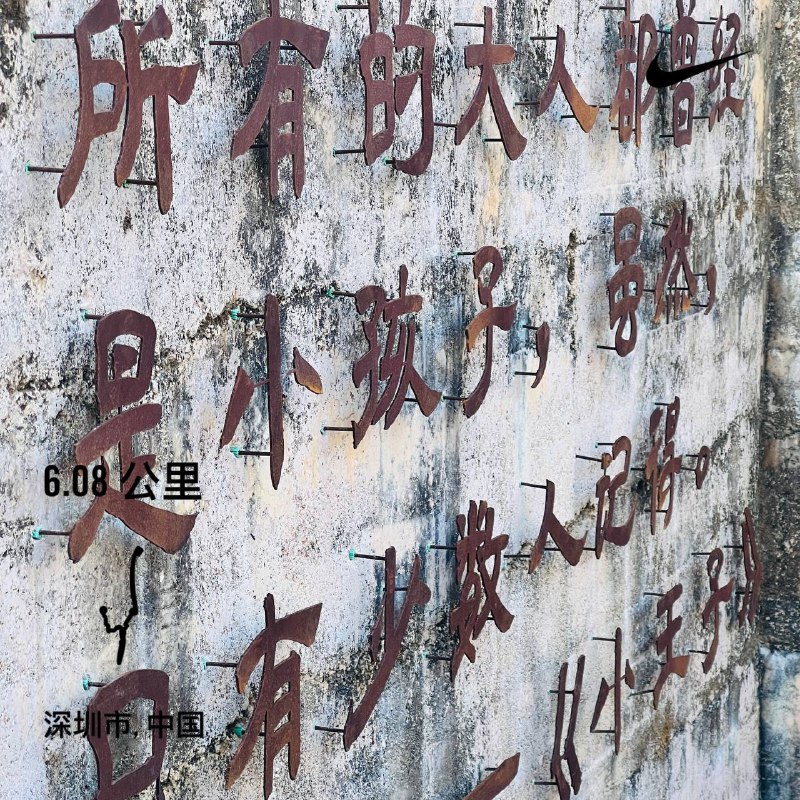 所有的大人都曾经
是小孩子，虽然，
只有少数人记得。
《小王子》
6.08 公里
深圳市, 中国